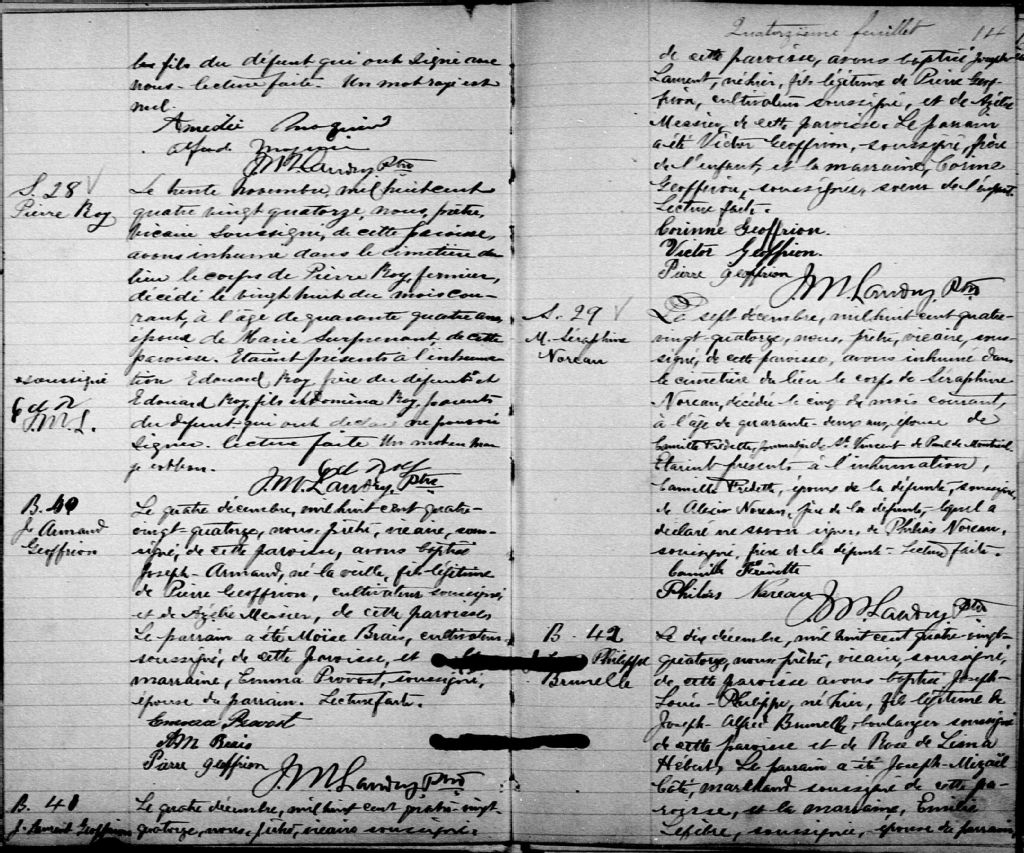 les fils du défunt qui ont signé avec
nous. lecture faite. Un mot rayé est
nul.
Amédée
Alfred
J.M. Landry Ptre
S. 28
Pierre Roy
Le trente novembre, mil huit cent
quatre vingt quatorze, nous, prêtre,
vicaire soussigné, de cette paroisse,
avons inhumé dans le cimetière du
lieu le corps de Pierre Roy, fermier,
décédé le vingt huit du mois cou-
rant, à l'âge de quarante quatre ans,
époux de Marie Surprenant, de cette
paroisse. Etaient présents à l'inhuma-
*soussigné
tion Edouard Roy père du défunt* et
Ed R
J.M.L.
Edouard Roy, fils et Domina Roy, parents
du défunt qui ont déclaré ne pouvoir
signer. lecture faite Un mot en mar-
ge est bon.
Ed Roy
J.M. Landry, Ptre
B. 40
Js Armand
Geoffrion
Le quatre décembre, mil huit cent quatre-
vingt quatorze, nous, prêtre, vicaire, sous-
signé, de cette paroisse, avons baptisé
Joseph-Armand, né la veille, fils légitime
de Pierre Geoffrion, cultivateur soussigné
et de Azélie Messier, de cette paroisse.
Le parrain a été Moïse Brais, cultivateur
soussigné, de cette paroisse, et la
marraine, Emma Provost, soussigné,
épouse du parrain. Lecture faite.
Emma Provost
A M Brais
Pierre Geoffrion
J.M. Landry Ptre
B. 41
J. Laurent Geoffrion
Le quatre décembre, mil huit cent quatre-vingt
quatorze, nous, prêtre, vicaire soussigné,
Quatorzième feuillet 14
de cette paroisse, avons baptisé Joseph-
Laurent, né hier, fils légitime de Pierre Geof-
frion, cultivateur soussigné, et de Azélie
Messier, de cette paroisse. Le parrain
a été Victor Geoffrion, soussigné, frère
de l'enfant, et la marraine, Corine
Geoffrion, soussignée, soeur de l'enfant.
Lecture faite.
Corinne Geoffrion.
Victor Geoffrion.
Pierre Geoffrion
J.M. Landry, Ptre
S. 29
M. Séraphine
Noreau
Le sept décembre, mil huit cent quatre-
vingt-quatorze, nous, prêtre, vicaire, sous-
signé, de cette paroisse, avons inhumé dans
le cimetière du lieu le corps de Séraphine
Noreau, décédée le cinq du mois courant,
à l'âge de quarante-deux ans, épouse de
Camille Frédette, journalier de St Vincent de Paul de Montréal.
Etaient présents à l'inhumation,
Camille Frédette, époux de la défunte, soussigné,
de Alexis Noreau, père de la défunte, lequel a
déclaré ne savoir signer, de Philias Noreau,
soussigné, frère de la défunte. Lecture faite.
Camille Frédette
Philias Noreau
J.M. Landry Ptre
B. 42
Philippe
Brunelle
Le dix décembre, mil huit cent quatre-vingt-
quatorze, nous, prêtre, vicaire, soussigné,
de cette paroisse avons baptisé Joseph-
Louis-Philippe, né hier, fils légitime de
Joseph-Alfred Brunelle, boulanger soussigné
de cette paroisse et de Rose de Lima
Hébert. Le parrain a été Joseph-Mizaël
Côté, marchand soussigné de cette pa-
roisse, et la marraine, Emilie
Lefebvre, soussignée, épouse du parrain,